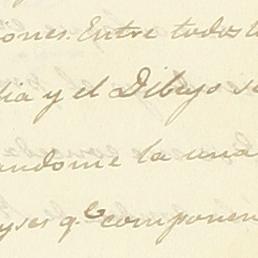 iones. Entre todos l
dia y el Dibujo se
andome la una
yses q.e componen